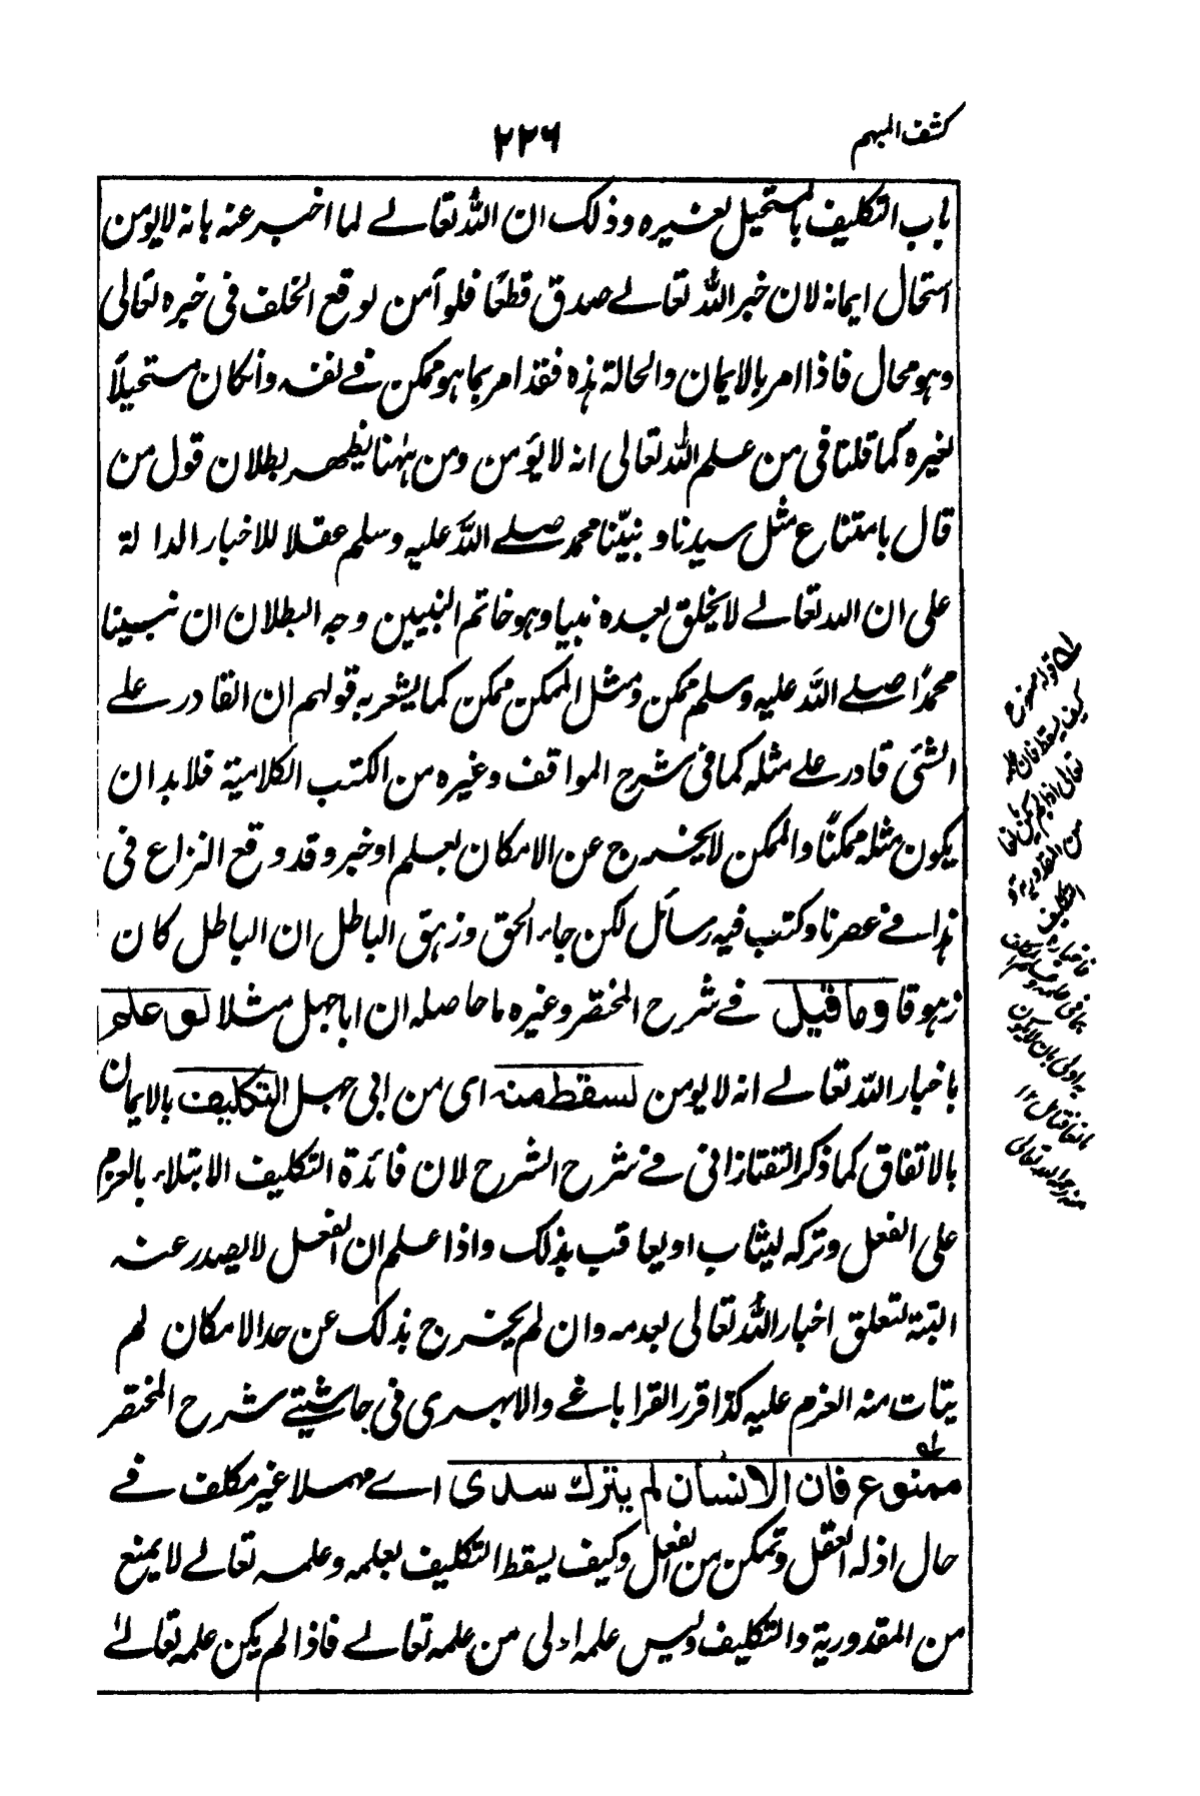 كشف المبهم
٢٢٦
باب التكليف بالمستحيل لغيره وذلك ان الله تعالے لما اخبر عنه بانه لا يومن
استحال ايمانه لان خبر الله تعالے صدق قطعًا فلو آمن لوقع الخلف فى خبره تعالى
وهو محال فاذا امر بالايمان والحالة هذه فقد امر بما هو ممكن فے نفسه وانكان مستحيلاً
لغيره كما قلنا فى من علم الله تعالى انه لا يؤمن ومن ههنا يظهر بطلان قول من
قال بامتناع مثل سيدنا ونبيّنا محمد صلے الله عليه وسلم عقلا للاخبار الدالة
على ان الله تعالے لا يخلق بعده نبيا وهو خاتم النبيين وجه البطلان ان نبينا
محمدًا صلے الله عليه وسلم ممكن ومثل الممكن ممكن كما يشعر به قولهم ان القادر علے
الشئ قادر علے مثله كما فى شرح المواقف وغيره من الكتب الكلامية فلابد ان
يكون مثله ممكنًا والممكن لا يخرج عن الامكان بعلم او خبر وقد وقع النزاع فى
هذا فے عصرنا وكتب فيه رسائل لكن جاء الحق وزهق الباطل ان الباطل كان
زهوقا وما قيل فے شرح المختصر وغيره ما حاصله ان ابا جهل مثلا لو علم
باخبار الله تعالے انه لا يومن لسقط منه اى من ابى جهل التكليف بالايمان
بالاتفاق كما ذكر التفتازانى فے شرح الشرح لان فائدة التكليف الابتلاء بالعزم
على الفعل وتركه ليثاب او يعاقب بذلك واذا علم ان الفعل لا يصدر عنه
البتة لتعلق اخبار الله تعالى بعدمه وان لم يخرج بذلك عن حد الامكان لم
يتات منه العزم عليه كذا قرر القراباغے والابهرى فى حاشيتے شرح المختصر
ممنوع فان الانسان لم يترك سدى اے مهملا غير مكلف فے
حال اذ له العقل وتمكن من الفعل وكيف يسقط التكليف بعلمه وعلمه تعالے لا يمنع
من المقدورية والتكليف وليس علمه اولى من علمه تعالے فاذا لم يكن علمه تعالےٰ
له قوله ممنوع
كيف يسقط فان علمه
تعالى اذا لم يكن مانعا
من المقدورية و
التكليف
فاخباره
به اولى بان لا يكون
مانعا فتامل ١٢
منه رحمه الله تعالى